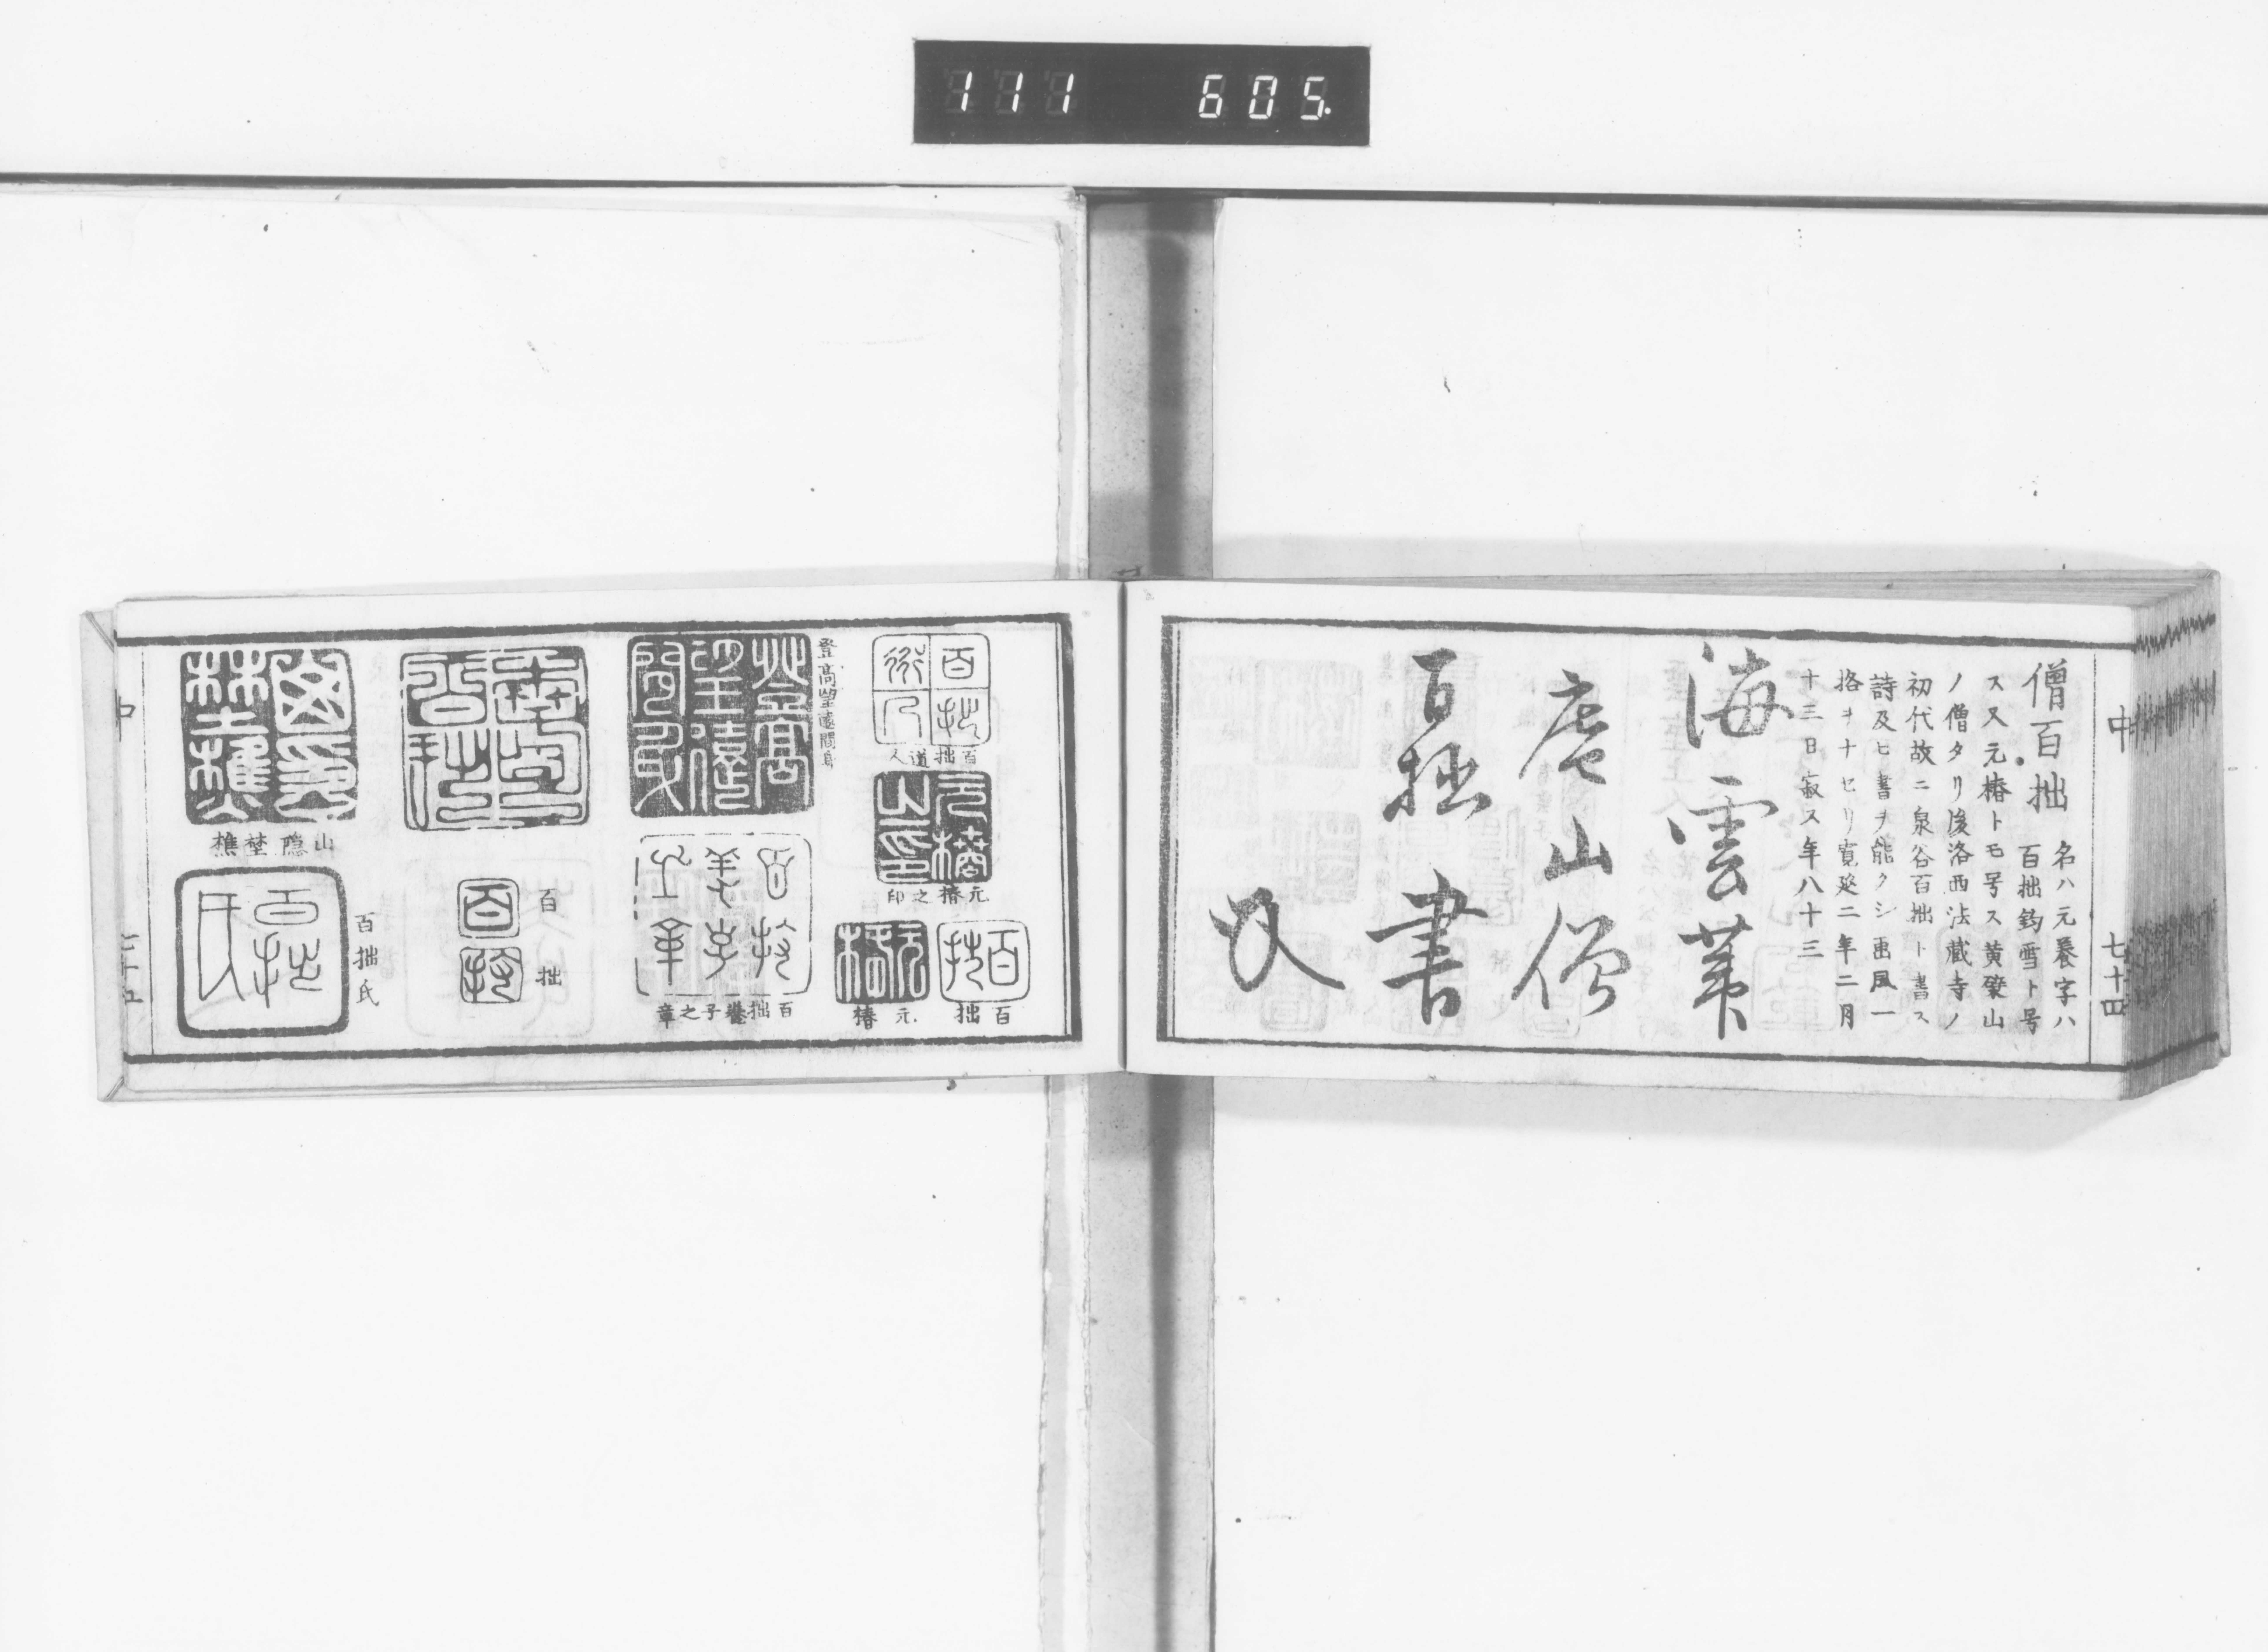 111 605.
中
七十四
僧百拙 名ハ元養字ハ
百拙釣雪ト号
ス又元椿ト モ号ス黄檗山
ノ僧タリ後洛西法藏寺ノ
初代故ニ泉谷百拙ト書ス
詩及ヒ書ヲ能クシ画風一
格ヲナセリ寛延二年二月
十三日寂ス年八十三
海雲
山僧
百拙書
百拙道人
元椿之印
百拙
元椿
登高望遠
百拙養子之章
百拙
山隐埜樵
百拙氏
中
七十五